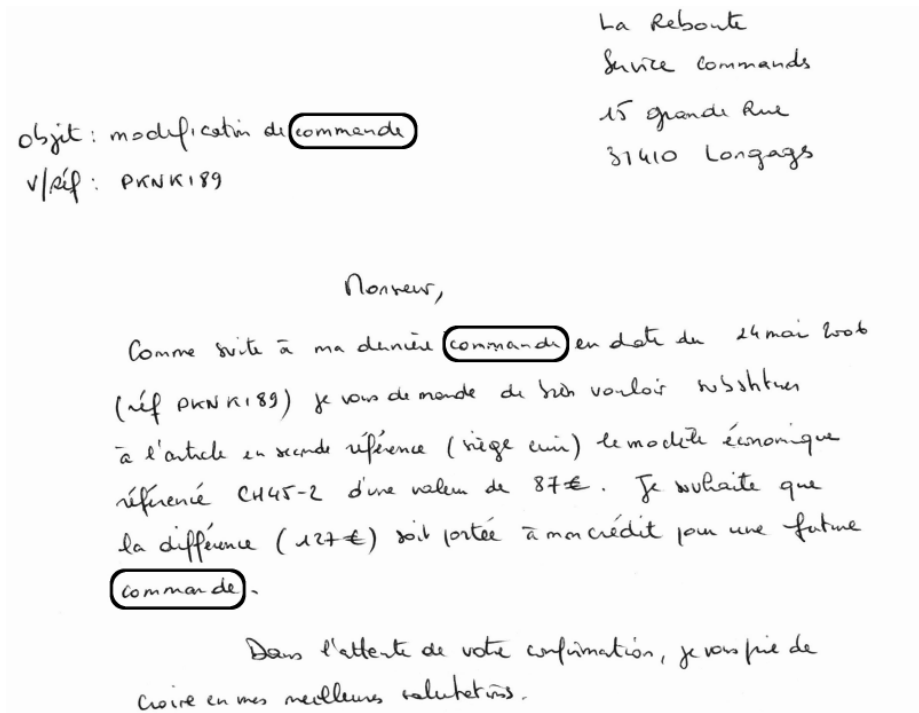 La Reboute
Service Commands
15 grande Rue
31410 Longags
objet : modification de commande
V/Réf : PKNK189
Monsieur,
Comme suite à ma dernière commande en date du 24 mai 2006
(réf PKNK189) je vous demande de bien vouloir substituer
à l'article en seconde référence (siège cuir) le modèle économique
référencé CH45-2 d'une valeur de 87€. Je souhaite que
la différence (127€) soit portée à mon crédit pour une future
commande.
Dans l'attente de votre confirmation, je vous prie de
croire en mes meilleures salutations.